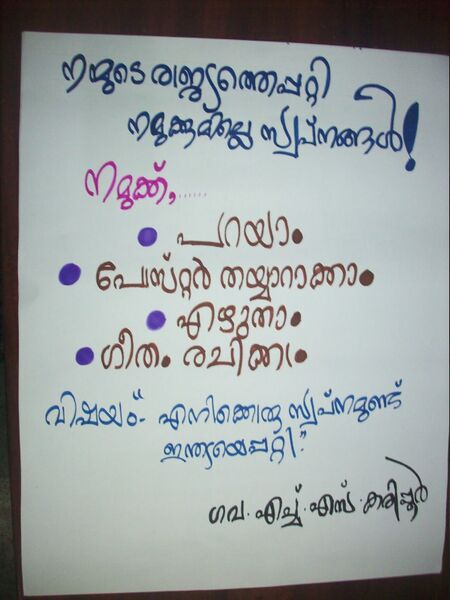 നമ്മുടെ രാജ്യത്തെപ്പറ്റി
നമുക്കുമില്ലെ സ്വപ്നങ്ങൾ!
നമുക്ക്,......
പറയാം
പോസ്റ്റർ തയ്യാറാക്കാം
എഴുതാം
ഗീതം രചിക്കാം
വിഷയം:- എനിക്കൊരു സ്വപ്നമുണ്ട്
ഇന്ത്യയെപ്പറ്റി."
ഗവ. എച്ച്. എസ്. കരിപ്പൂർ